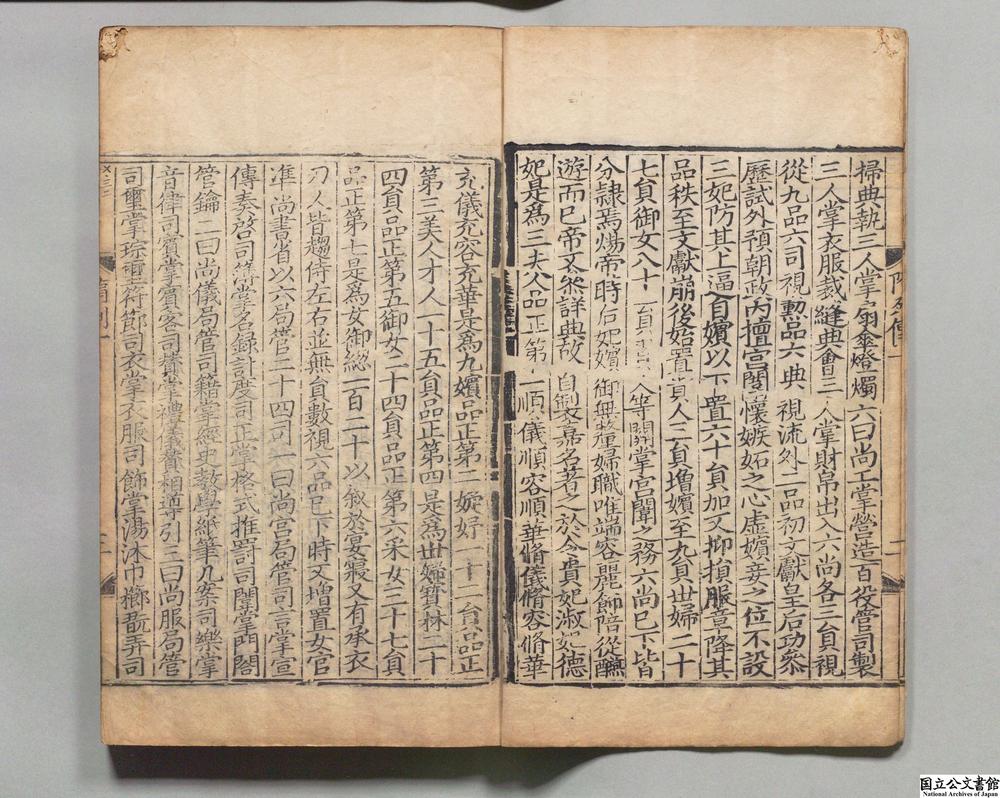 掃典執三人掌扇傘燈燭六曰尚工掌營造百役管司製
三人掌衣服裁縫典會三人掌財帛出入六尚各三員視
從九品六司視勲品六典視流外二品初文獻皇后功參
歷試外預朝政内擅宫闈懷嫉妬之心虚嬪妾之位不設
三妃防其上逼自嬪以下置六十員加又抑損服章降其
品秩至文獻崩後始置貴人三員增嬪至九員世婦二十
七員御女八十一員貴人等關掌宫闈之務六尚已下皆
分隷焉煬帝時后妃嬪御無釐婦職唯端容麗飾陪從醼
遊而已帝又參詳典故自製嘉名著之於令貴妃淑妃德
妃是爲三夫人品正第一順儀順容順華脩儀脩容脩華
充儀充容充華是爲九嬪品正第二婕妤一十二員品正
第三美人才人一十五員品正第四是爲世婦寶林二十
四員品正第五御女二十四員品正第六采女三十七員
品正第七是爲女御緫一百二十以叙於宴寢又有承衣
刀人皆趨侍左右並無員數視六品已下時又增置女官
准尚書省以六局管二十四司一曰尚宫局管司言掌宣
傳奏啓司簿掌名錄計度司正掌格式推罰司闈掌門閤
管鑰二曰尚儀局管司籍掌經史教學紙筆几案司樂掌
音律司賓掌賓客司贊掌禮儀贊相導引三曰尚服局管
司璽掌琮璽符節司衣掌衣服司飾掌湯沐巾櫛翫弄司
国立公文書館
National Archives of Japan